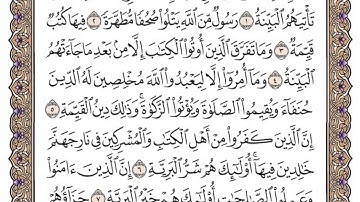 تَأْتِيَهُمُ ٱلْبَيِّنَةُ ١ رَسُولٌ مِّنَ ٱللَّهِ يَتْلُوا۟ صُحُفًا مُّطَهَّرَةً ٢ فِيهَا كُتُبٌ
قَيِّمَةٌ ٣ وَمَا تَفَرَّقَ ٱلَّذِينَ أُوتُوا۟ ٱلْكِتَٰبَ إِلَّا مِنۢ بَعْدِ مَا جَآءَتْهُمُ
ٱلْبَيِّنَةُ ٤ وَمَآ أُمِرُوٓا۟ إِلَّا لِيَعْبُدُوا۟ ٱللَّهَ مُخْلِصِينَ لَهُ ٱلدِّينَ
حُنَفَآءَ وَيُقِيمُوا۟ ٱلصَّلَوٰةَ وَيُؤْتُوا۟ ٱلزَّكَوٰةَ وَذَٰلِكَ دِينُ ٱلْقَيِّمَةِ ٥
إِنَّ ٱلَّذِينَ كَفَرُوا۟ مِنْ أَهْلِ ٱلْكِتَٰبِ وَٱلْمُشْرِكِينَ فِى نَارِ جَهَنَّمَ
خَٰلِدِينَ فِيهَآ أُو۟لَٰٓئِكَ هُمْ شَرُّ ٱلْبَرِيَّةِ ٦ إِنَّ ٱلَّذِينَ ءَامَنُوا۟
وَعَمِلُوا۟ ٱلصَّٰلِحَٰتِ أُو۟لَٰٓئِكَ هُمْ خَيْرُ ٱلْبَرِيَّةِ ٧ جَزَآؤُهُمْ